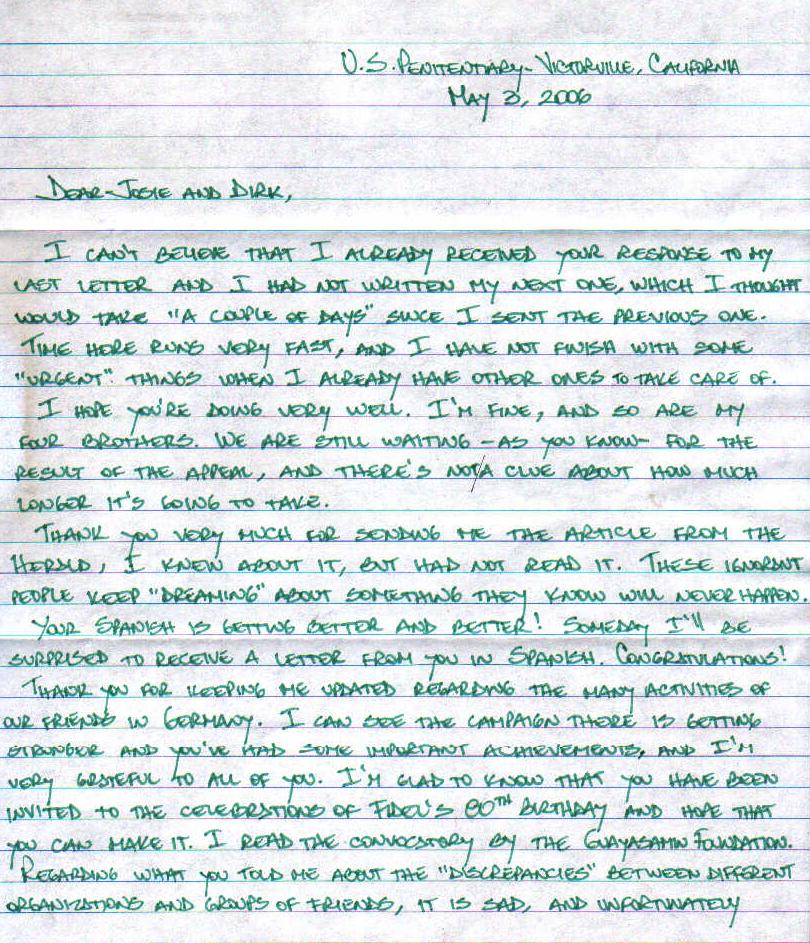 U.S. PENITENTIARY - VICTORVILLE, CALIFORNIA
MAY 3, 2006
DEAR JOSIE AND DIRK,
I CAN'T BELIEVE THAT I ALREADY RECEIVED YOUR RESPONSE TO MY
LAST LETTER AND I HAD NOT WRITTEN MY NEXT ONE, WHICH I THOUGHT
WOULD TAKE "A COUPLE OF DAYS" SINCE I SENT THE PREVIOUS ONE.
TIME HERE RUNS VERY FAST, AND I HAVE NOT FINISH WITH SOME
"URGENT" THINGS WHEN I ALREADY HAVE OTHER ONES TO TAKE CARE OF.
I HOPE YOU'RE DOING VERY WELL. I'M FINE, AND SO ARE MY
FOUR BROTHERS. WE ARE STILL WAITING - AS YOU KNOW - FOR THE
RESULT OF THE APPEAL, AND THERE'S NOT/A CLUE ABOUT HOW MUCH
LONGER IT'S GOING TO TAKE.
THANK YOU VERY MUCH FOR SENDING ME THE ARTICLE FROM THE
HERALD, I KNEW ABOUT IT, BUT HAD NOT READ IT. THESE IGNORANT
PEOPLE KEEP "DREAMING" ABOUT SOMETHING THEY KNOW WILL NEVER HAPPEN.
YOUR SPANISH IS GETTING BETTER AND BETTER! SOMEDAY I'll BE
SURPRISED TO RECEIVE A LETTER FROM YOU IN SPANISH. CONGRATULATIONS!
THANK YOU FOR KEEPING ME UPDATED REGARDING THE MANY ACTIVITIES OF
OUR FRIENDS IN GERMANY. I CAN SEE THE CAMPAIGN THERE IS GETTING
STRONGER AND YOU'VE HAD SOME IMPORTANT ACHIEVEMENTS, AND I'M
VERY GRATEFUL TO ALL OF YOU. I'M GLAD TO KNOW THAT YOU HAVE BEEN
INVITED TO THE CELEBRATIONS OF FIDEL'S 80TH BIRTHDAY AND HOPE THAT
YOU CAN MAKE IT. I READ THE CONVOCATORY BY THE GUAYASAMIN FOUNDATION.
REGARDING WHAT YOU TOLD ME ABOUT THE "DISCREPANCIES" BETWEEN DIFFERENT
ORGANIZATIONS AND GROUPS OF FRIENDS, IT IS SAD, AND UNFORTUNATELY